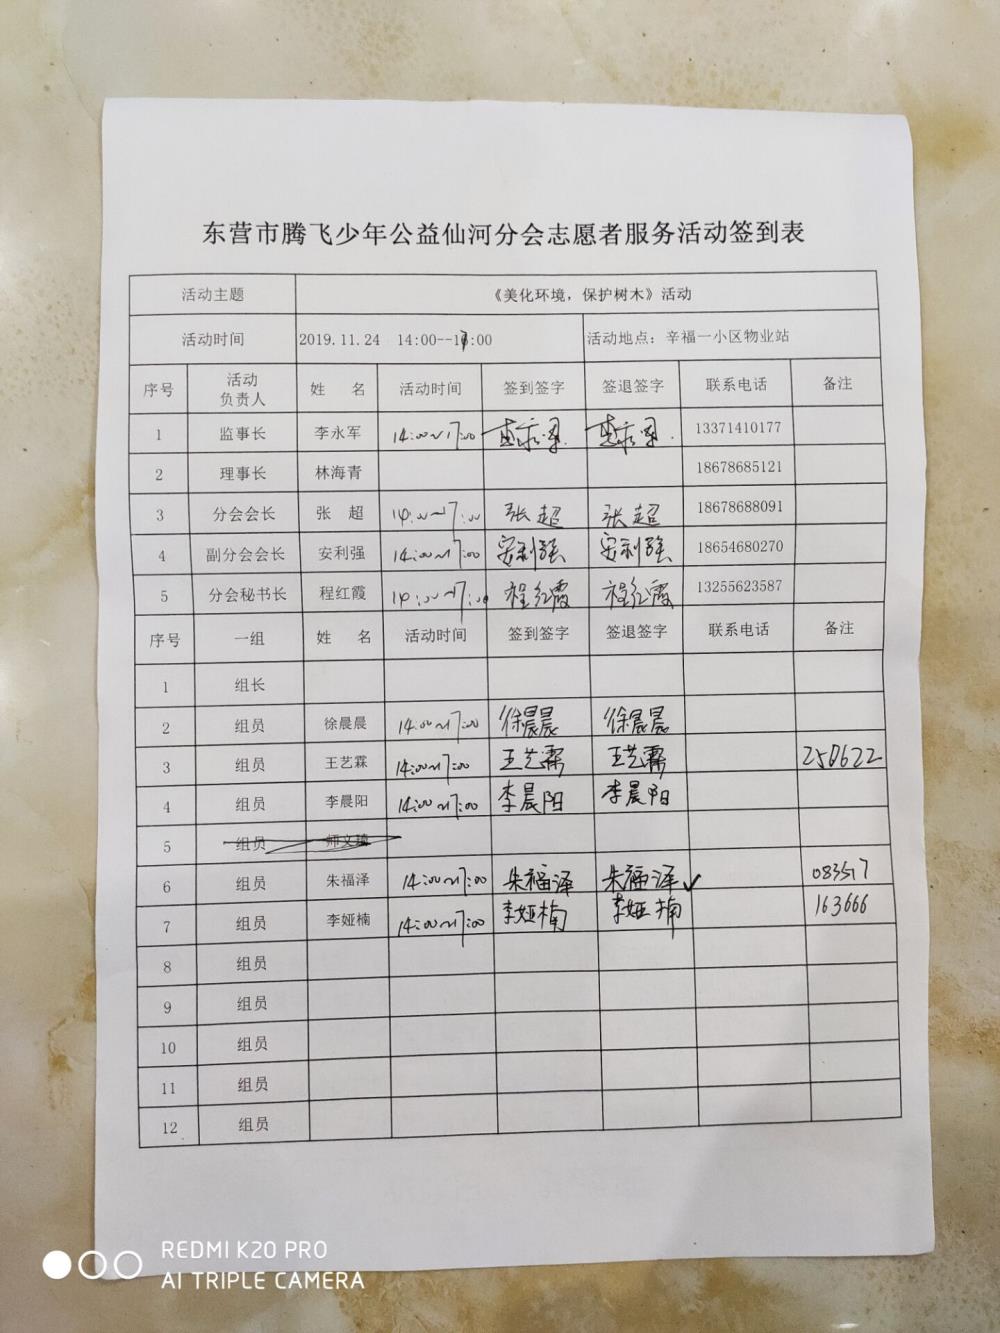 东营市腾飞少年公益仙河分会志愿者服务活动签到表
活动主题 《美化环境，保护树木》活动
活动时间 2019.11.24 14:00--17:00 活动地点：辛福一小区物业站
序号 活动负责人 姓 名 活动时间 签到签字 签退签字 联系电话 备注
1 监事长 李永军 14:00~17:00 13371410177
2 理事长 林海青 18678685121
3 分会会长 张 超 14:00~17:00 张超 张超 18678688091
4 副分会会长 安利强 14:00~17:00 安利强 安利强 18654680270
5 分会秘书长 程红霞 14:00~17:00 程红霞 程红霞 13255623587
序号 一组 姓 名 活动时间 签到签字 签退签字 联系电话 备注
1 组长
2 组员 徐晨晨 14:00~17:00 徐晨晨 徐晨晨
3 组员 王艺霖 14:00~17:00 王艺霖 王艺霖 250622
4 组员 李晨阳 14:00~17:00 李晨阳 李晨阳
5 组员
6 组员 朱福泽 14:00~17:00 朱福泽 朱福泽 083517
7 组员 李娅楠 14:00~17:00 李娅楠 李娅楠 163666
8 组员
9 组员
10 组员
11 组员
12 组员
REDMI K20 PRO
AI TRIPLE CAMERA